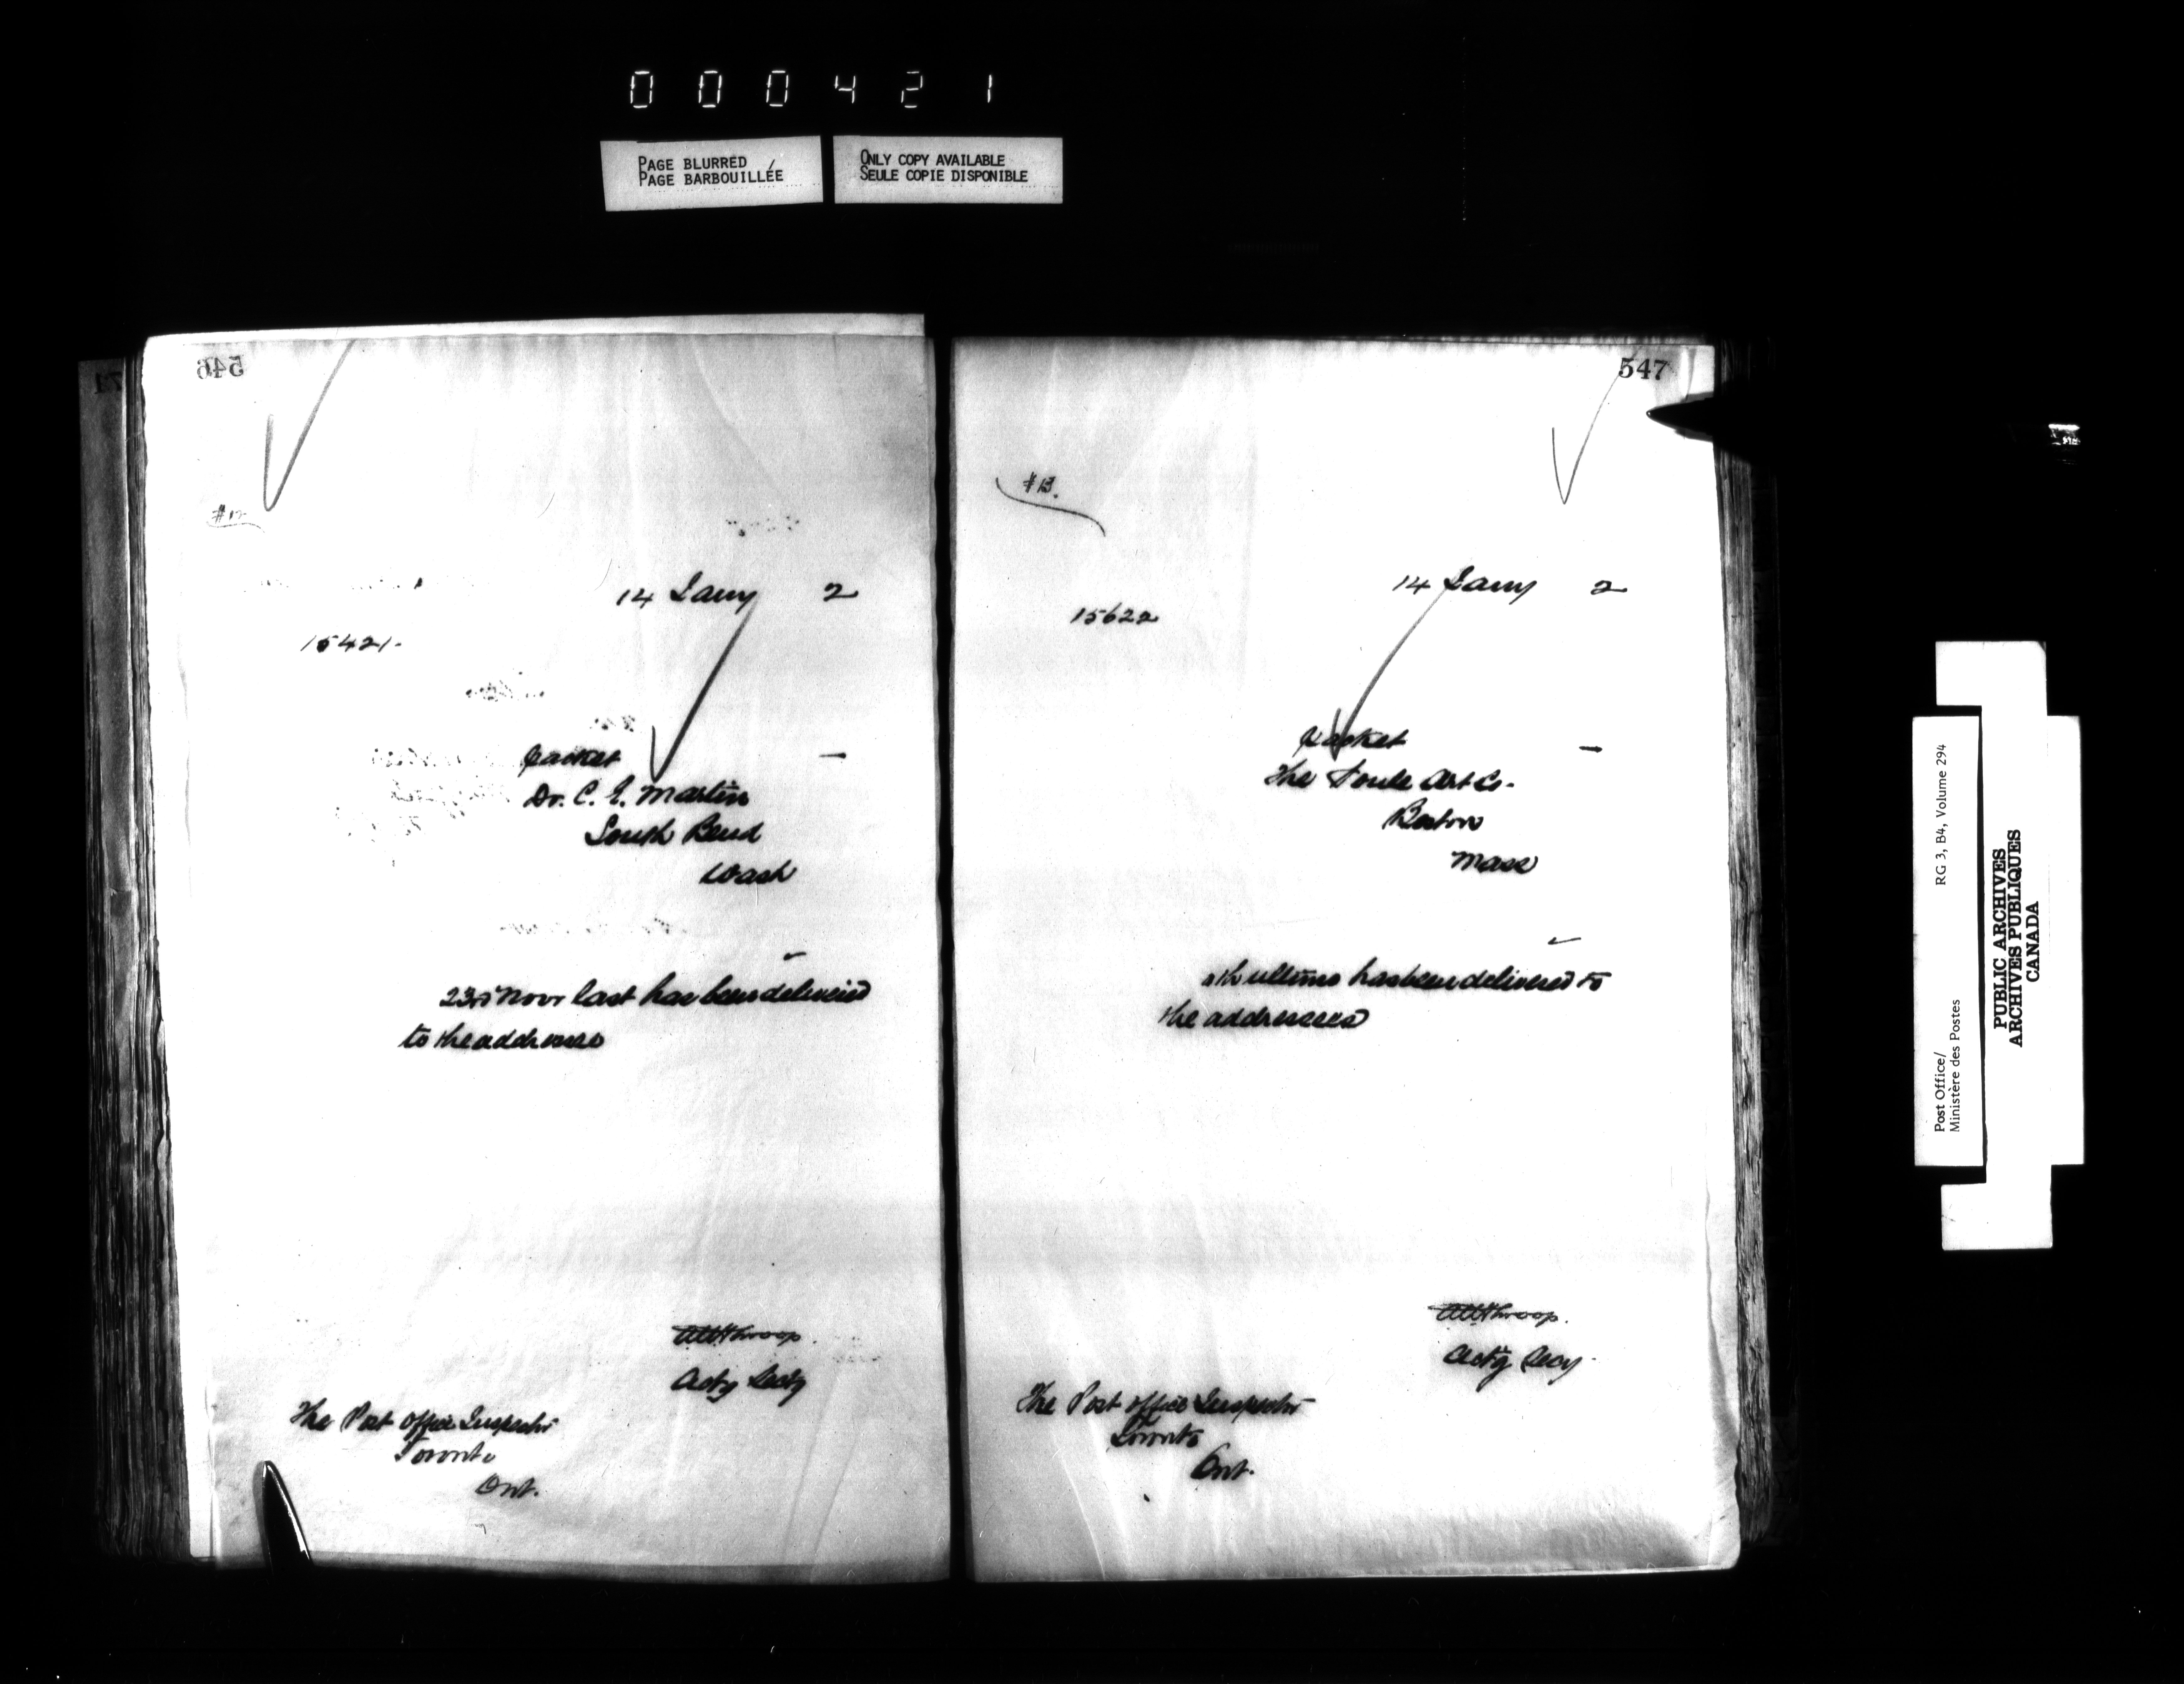 000421
PAGE BLURRED
PAGE BARBOUILLÉE
ONLY COPY AVAILABLE
SEULE COPIE DISPONIBLE
546
#12
14 Jany 2
15421.
Packet —
Dr. C. E. Martin
South Bend
Wash
23rd Novr last has been delivered
to the addressee
Throop.
Actg Secty
The Post Office Inspector
Toronto
Ont.
547
#13.
14 Jany 2
15622
Packet —
The Soule Art Co.
Boston
Mass
ultimo has been delivered to
the addressees
Throop.
Actg Secy.
The Post Office Inspector
Toronto
Ont.
Post Office/
Ministère des Postes
RG 3, B4, Volume 294
PUBLIC ARCHIVES
ARCHIVES PUBLIQUES
CANADA